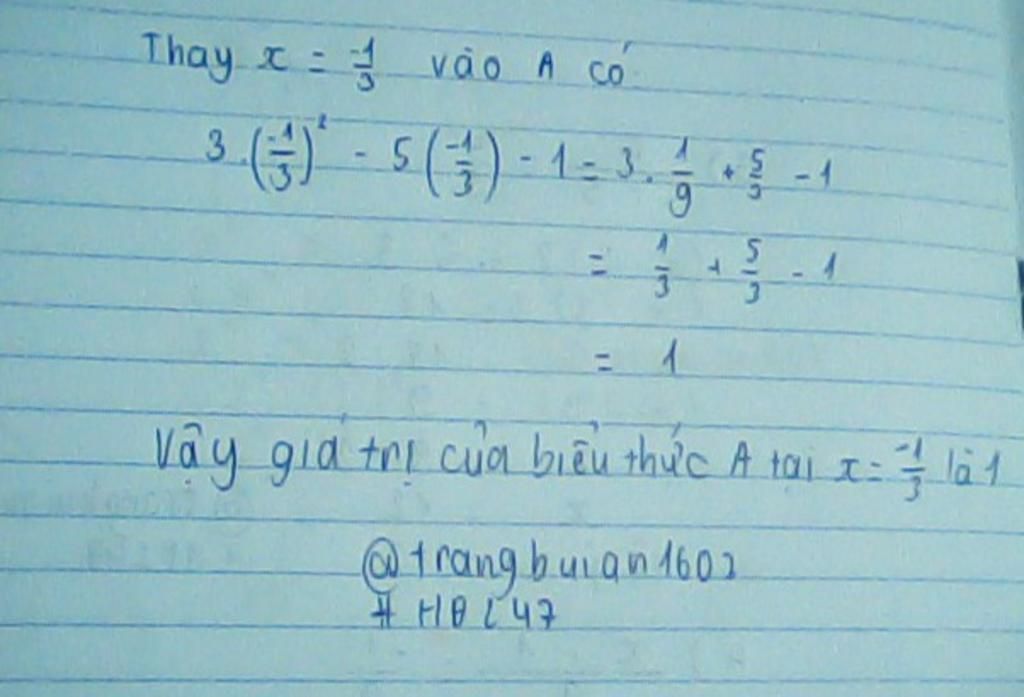 Thay x = -1/3 vào A có
3.(-1/3)² - 5(-1/3) - 1 = 3. 1/9 + 5/3 - 1
= 1/3 + 5/3 - 1
= 1
Vậy giá trị của biểu thức A tại x = -1/3 là 1
@trangbuian1602